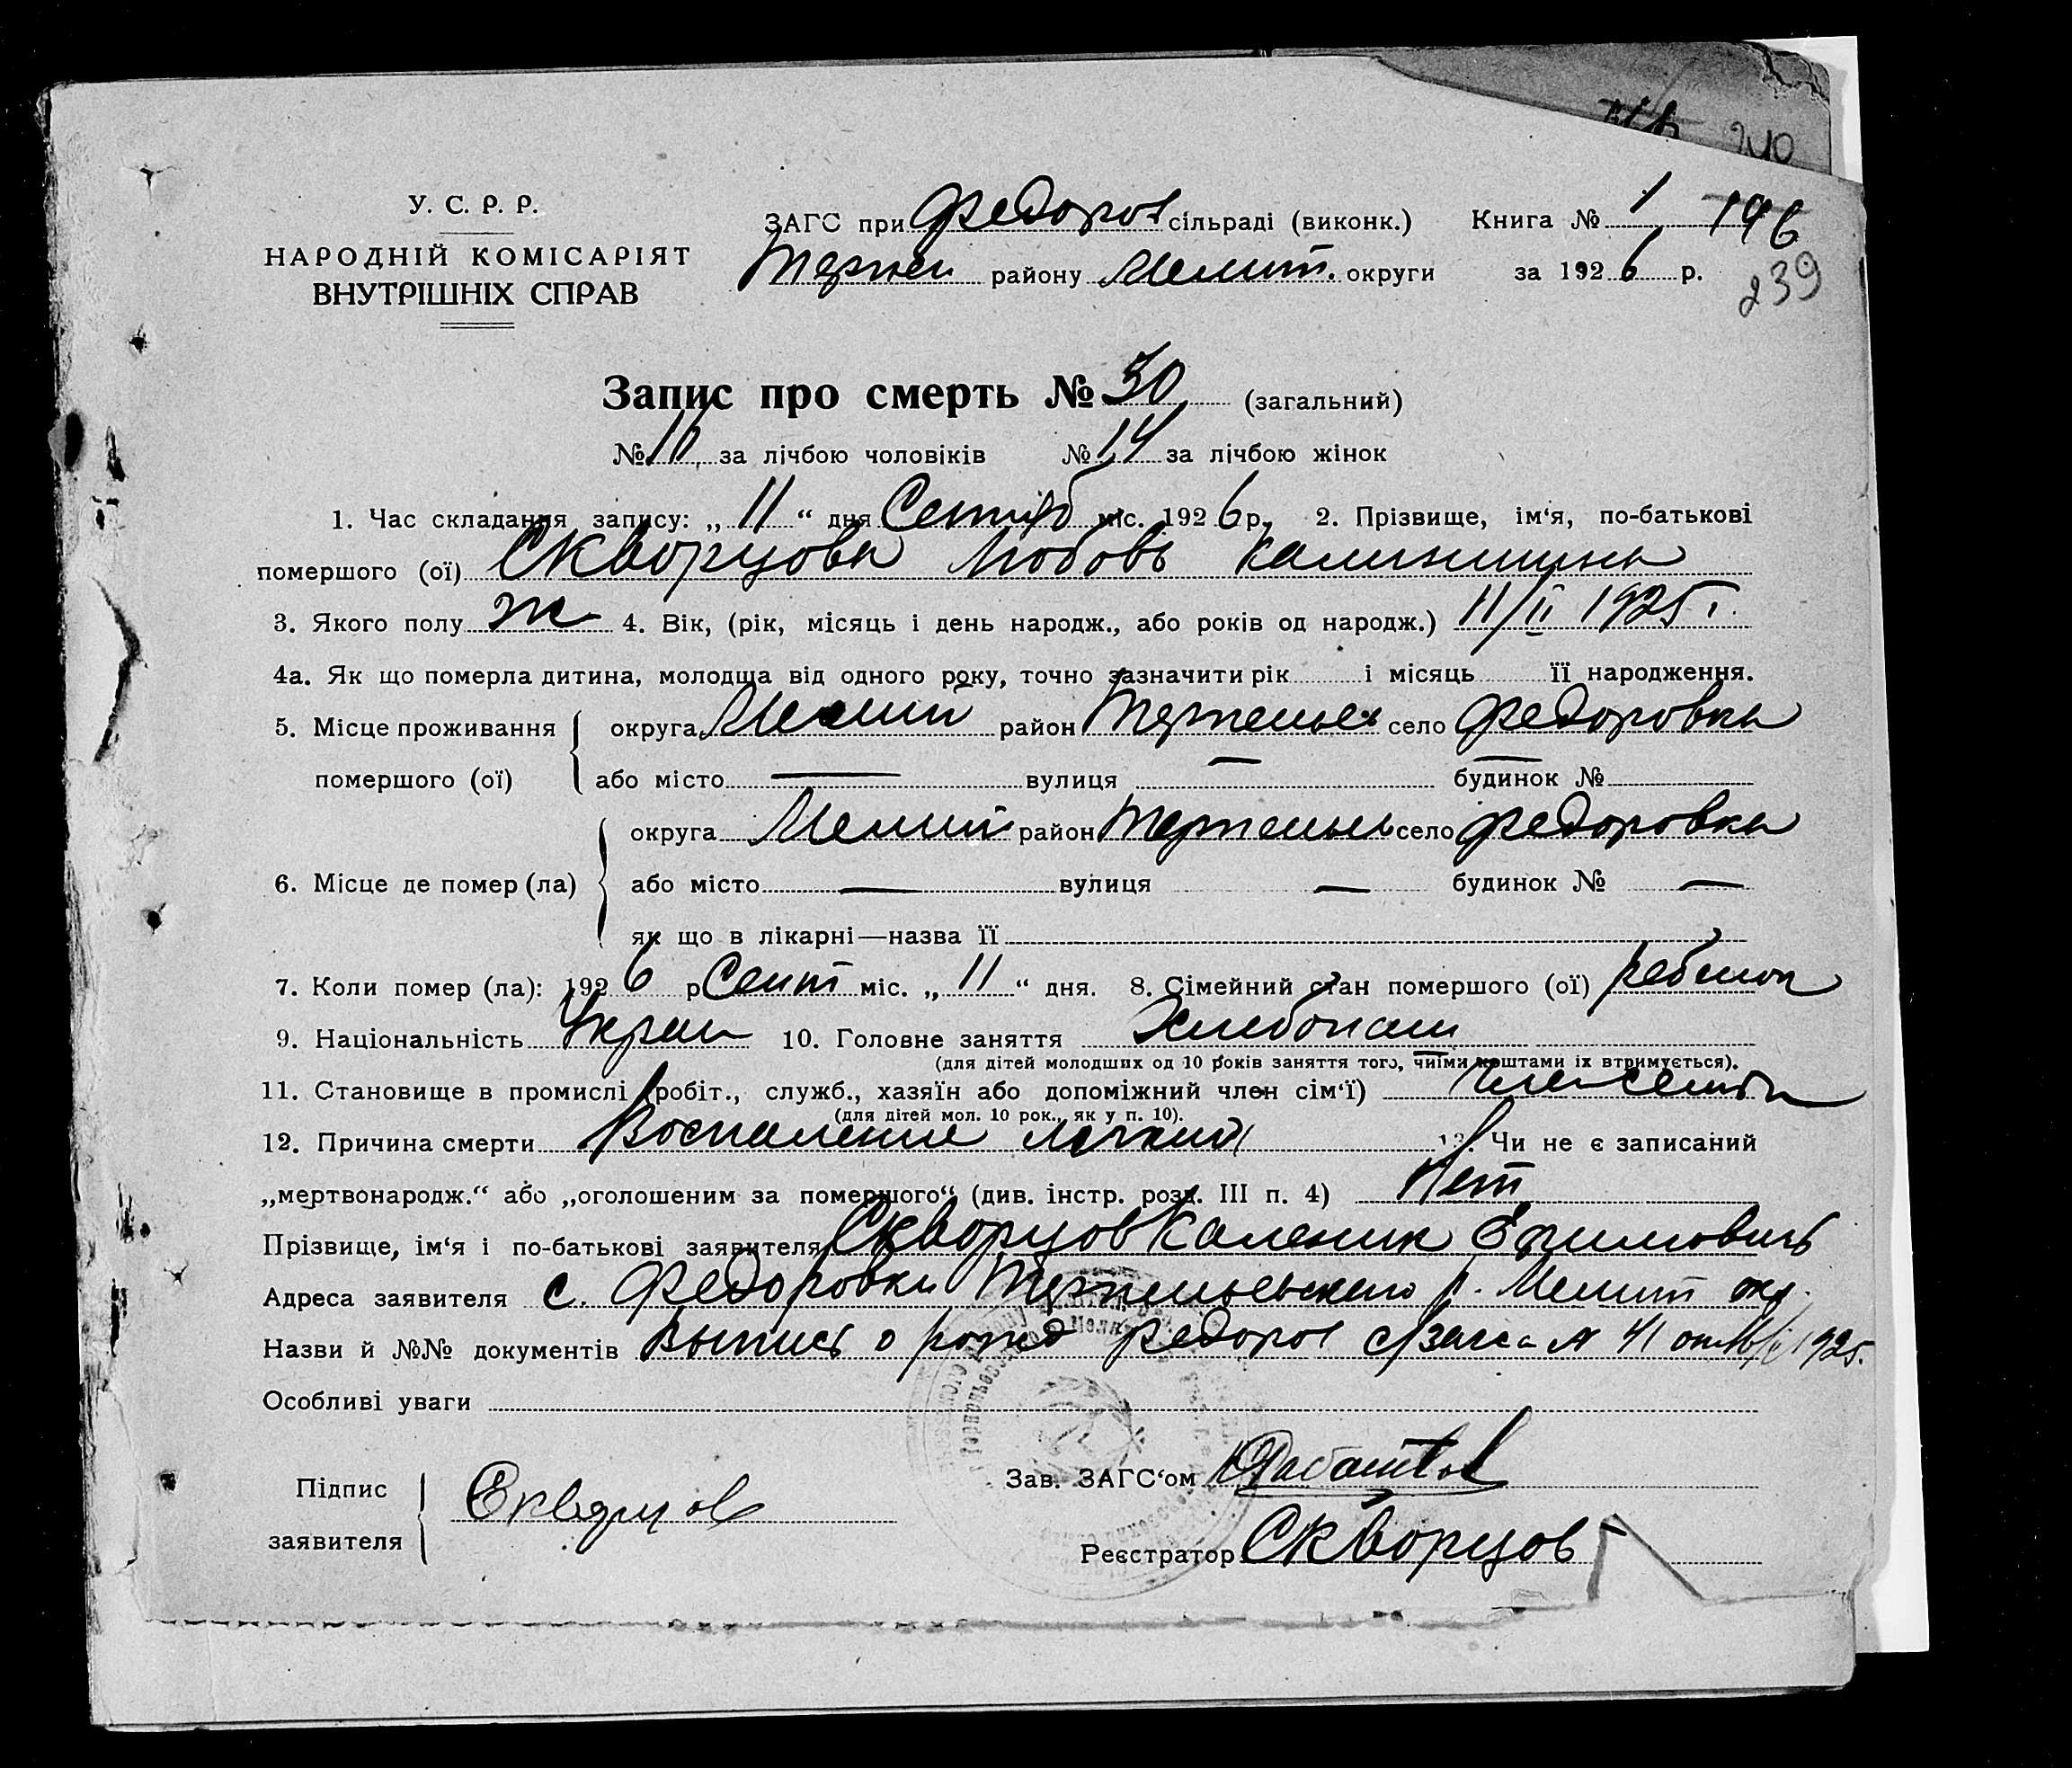 240
У. С. Р. Р.
НАРОДНІЙ КОМІСАРІЯТ
ВНУТРІШНІХ СПРАВ
ЗАГС при Федоров сільраді (виконк.) Книга № 1 196
Терпен району Мелит. округи за 1926 р. 239
Запис про смерть № 30 (загальний)
№ 16 за лічбою чоловіків № 14 за лічбою жінок
1. Час складання запису: „ 11 “ дня Сентяб міс. 1926 р. 2. Прізвище, ім‘я, по-батькові
помершого (ої) Скворцова Любовь Калиниши́на
3. Якого полу ж 4. Вік, (рік, місяць і день народж., або років од народж.) 11/II 1925 г.
4а. Як що померла дитина, молодща від одного року, точно зазначити рік і місяць її народження.
5. Місце проживання округа Мелит район Терпеньев село Федоровка
помершого (ої) або місто — вулиця — будинок № —
округа Мелит район Терпеньев село Федоровка
6. Місце де помер (ла) або місто — вулиця — будинок № —
як що в лікарні—назва її
7. Коли помер (ла): 1926 р Сент міс. „ 11 “ дня. 8. Сімейний стан помершого (ої) ребенок
9. Національність Украи 10. Головне заняття Хлебопаш
(для дітей молодших од 10 років заняття того, чиїми коштами їх втримується).
11. Становище в промислі (робіт., служб., хазяїн або допоміжний член сім‘ї) член семьи
(для дітей мол. 10 рок., як у п. 10).
12. Причина смерти Воспаление легких 13. Чи не є записаний
„мертвонародж.“ або „оголошеним за помершого“ (див. інстр. розд. III п. 4) Нет
Прізвище, ім‘я і по-батькові заявителя Скворцов Каленик Ефимович
Адреса заявителя с. Федоровка Терпеньевского р. Мелит окр.
Назви й №№ документів Выпись о рожд Федоров с/загса № 41 1925.
Особливі уваги
Підпис
заявителя Скворцов
Зав. ЗАГС‘ом
Реєстратор Скворцов